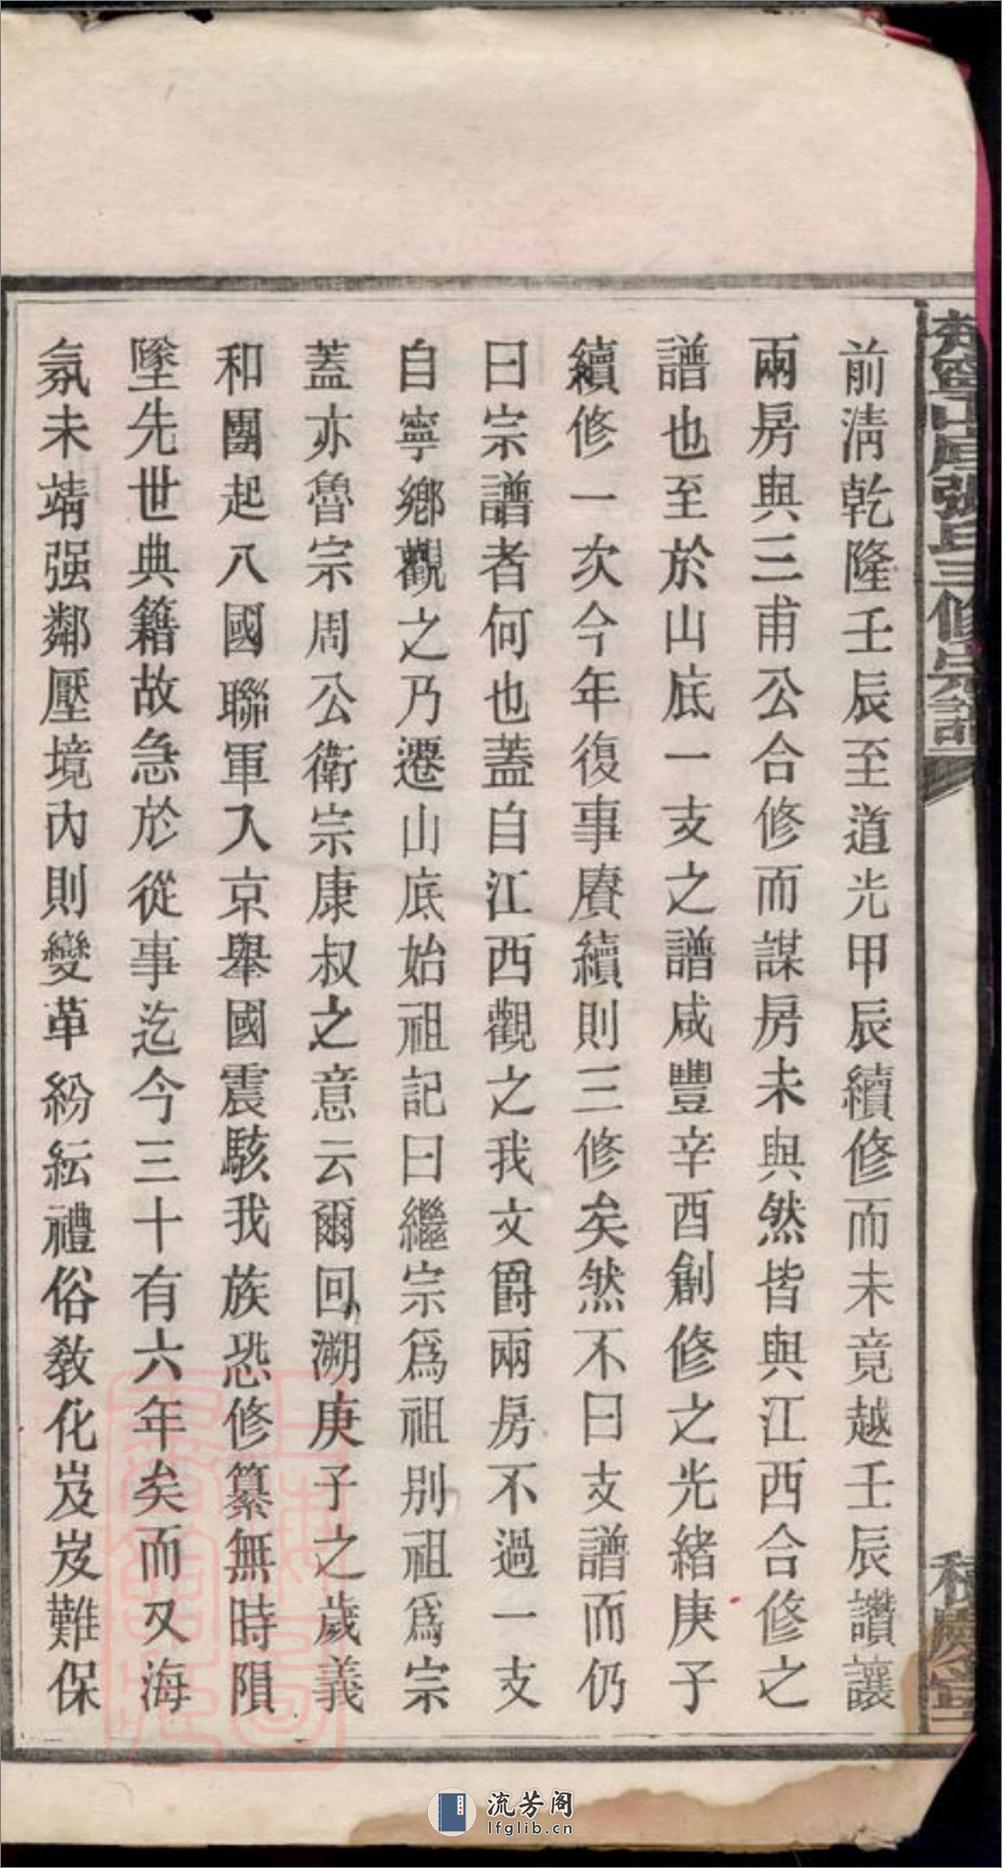 前淸乾隆壬辰至道光甲辰續修而未竟越壬辰讚讓
兩房與三甫公合修而謀房未與然皆與江西合修之
譜也至於山底一支之譜咸豐辛酉創修之光緒庚子
續修一次今年復事賡續則三修矣然不曰支譜而仍
曰宗譜者何也蓋自江西觀之我文爵兩房不過一支
自寧鄉觀之乃遷山底始祖記曰繼宗爲祖別祖爲宗
蓋亦魯宗周公衛宗康叔之意云爾回溯庚子之歲義
和團起八國聯軍入京舉國震駭我族恐修纂無時隕
墜先世典籍故急於從事迄今三十有六年矣而又海
氛未靖强鄰壓境內則變革紛紜禮俗敎化岌岌難保
山底張氏三修宗譜
流芳阁
lfglib.cn